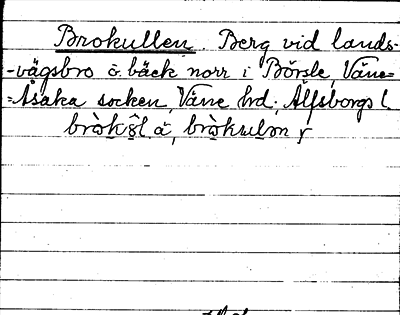 Brokullen. Berg vid lands-
-vägsbro ö. bäck norr i Börsle, Väne-
=Åsaka socken, Väne hd; Älfsborgs l.